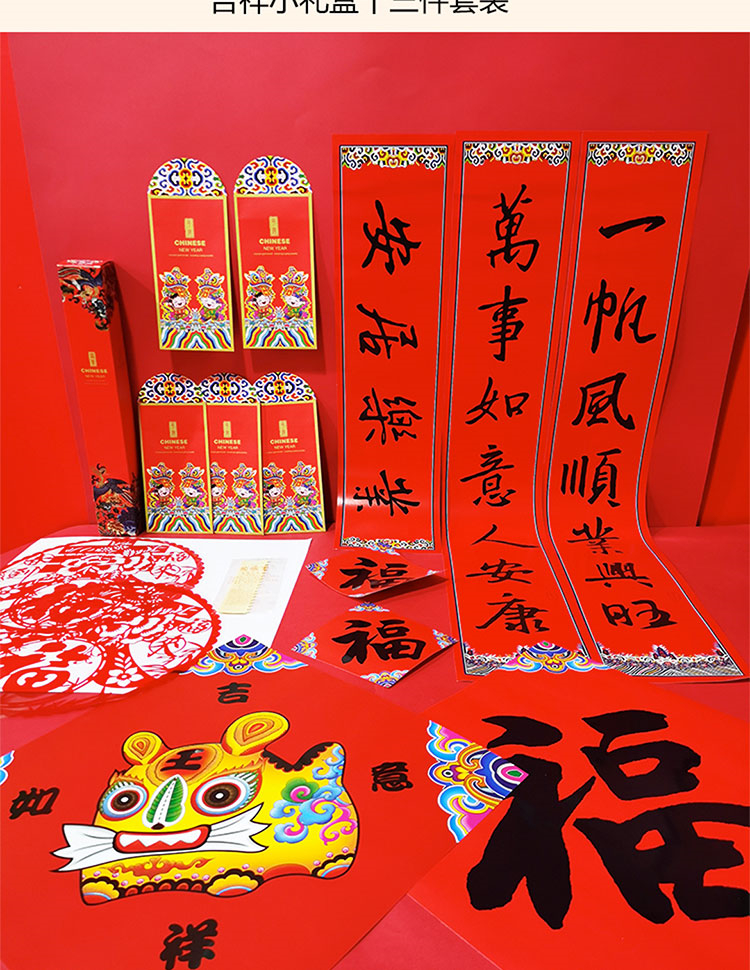 吉祥小礼盒十三件套装
CHINESE
NEW YEAR
CHINESE
NEW YEAR
CHINESE
NEW YEAR
CHINESE
NEW YEAR
CHINESE
NEW YEAR
CHINESE
NEW YEAR
安居樂業
萬事如意人安康
一帆風順業興旺
福
福
福
吉
祥
如
意
福